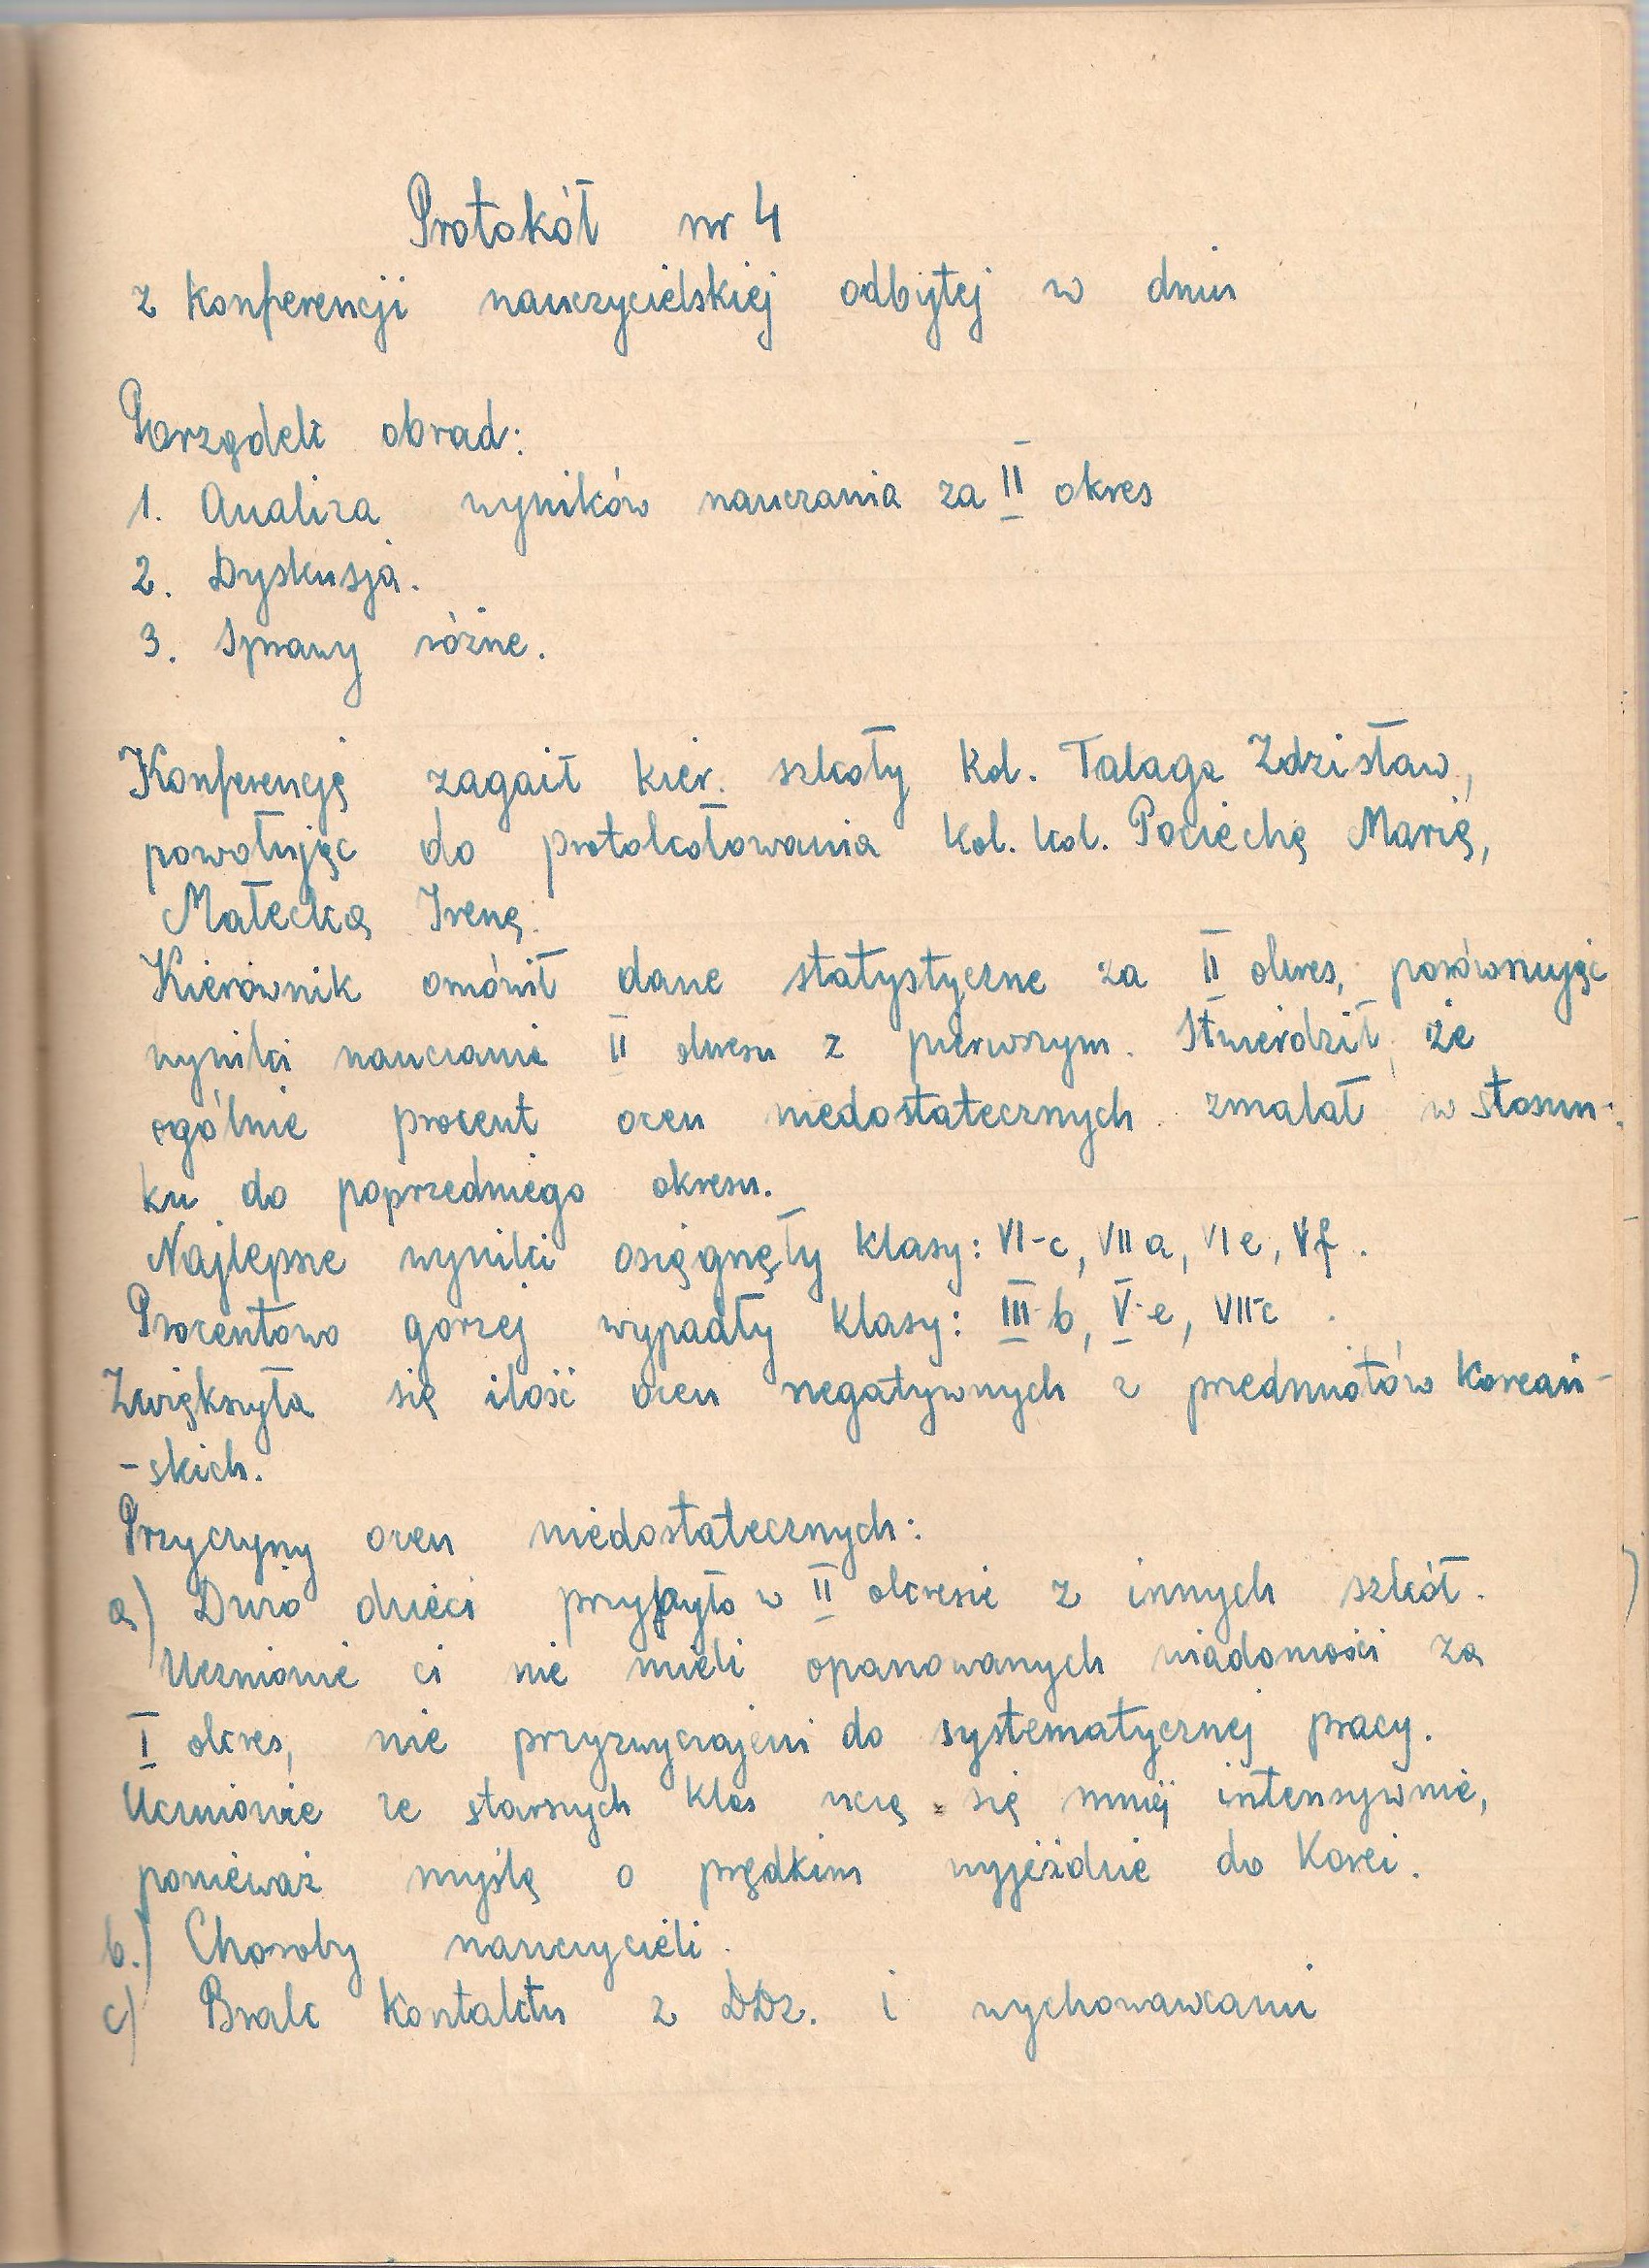 Protokół nr 4
z konferencji nauczycielskiej odbytej w dniu
Porządek obrad:
1. Analiza wyników nauczania za II okres
2. Dyskusja.
3. Sprawy różne.
Konferencję zagaił kier. szkoły kol. Talaga Zdzisław,
powołując do protokołowania kol. kol. Pociechę Marię,
Małecką Irenę.
Kierownik omówił dane statystyczne za II okres, porównując
wyniki nauczania II okresu z pierwszym. Stwierdził, że
ogólnie procent ocen niedostatecznych zmalał w stosun-
ku do poprzedniego okresu.
Najlepsze wyniki osiągnęły klasy: VI-c, VII a, VI e, V f.
Procentowo gorzej wypadły klasy: III-b, V-e, VII-c.
Zwiększyła się ilość ocen negatywnych z przedmiotów koreań-
-skich.
Przyczyny ocen niedostatecznych:
a) Dużo dzieci przybyło w II okresie z innych szkół.
Uczniowie ci nie mieli opanowanych wiadomości za
I okres, nie przyzwyczajeni do systematycznej pracy.
Uczniowie ze starszych klas uczą się mniej intensywnie,
ponieważ myślą o prędkim wyjeździe do Korei.
b.) Choroby nauczycieli.
c) Brak kontaktu z DDz. i wychowawcami